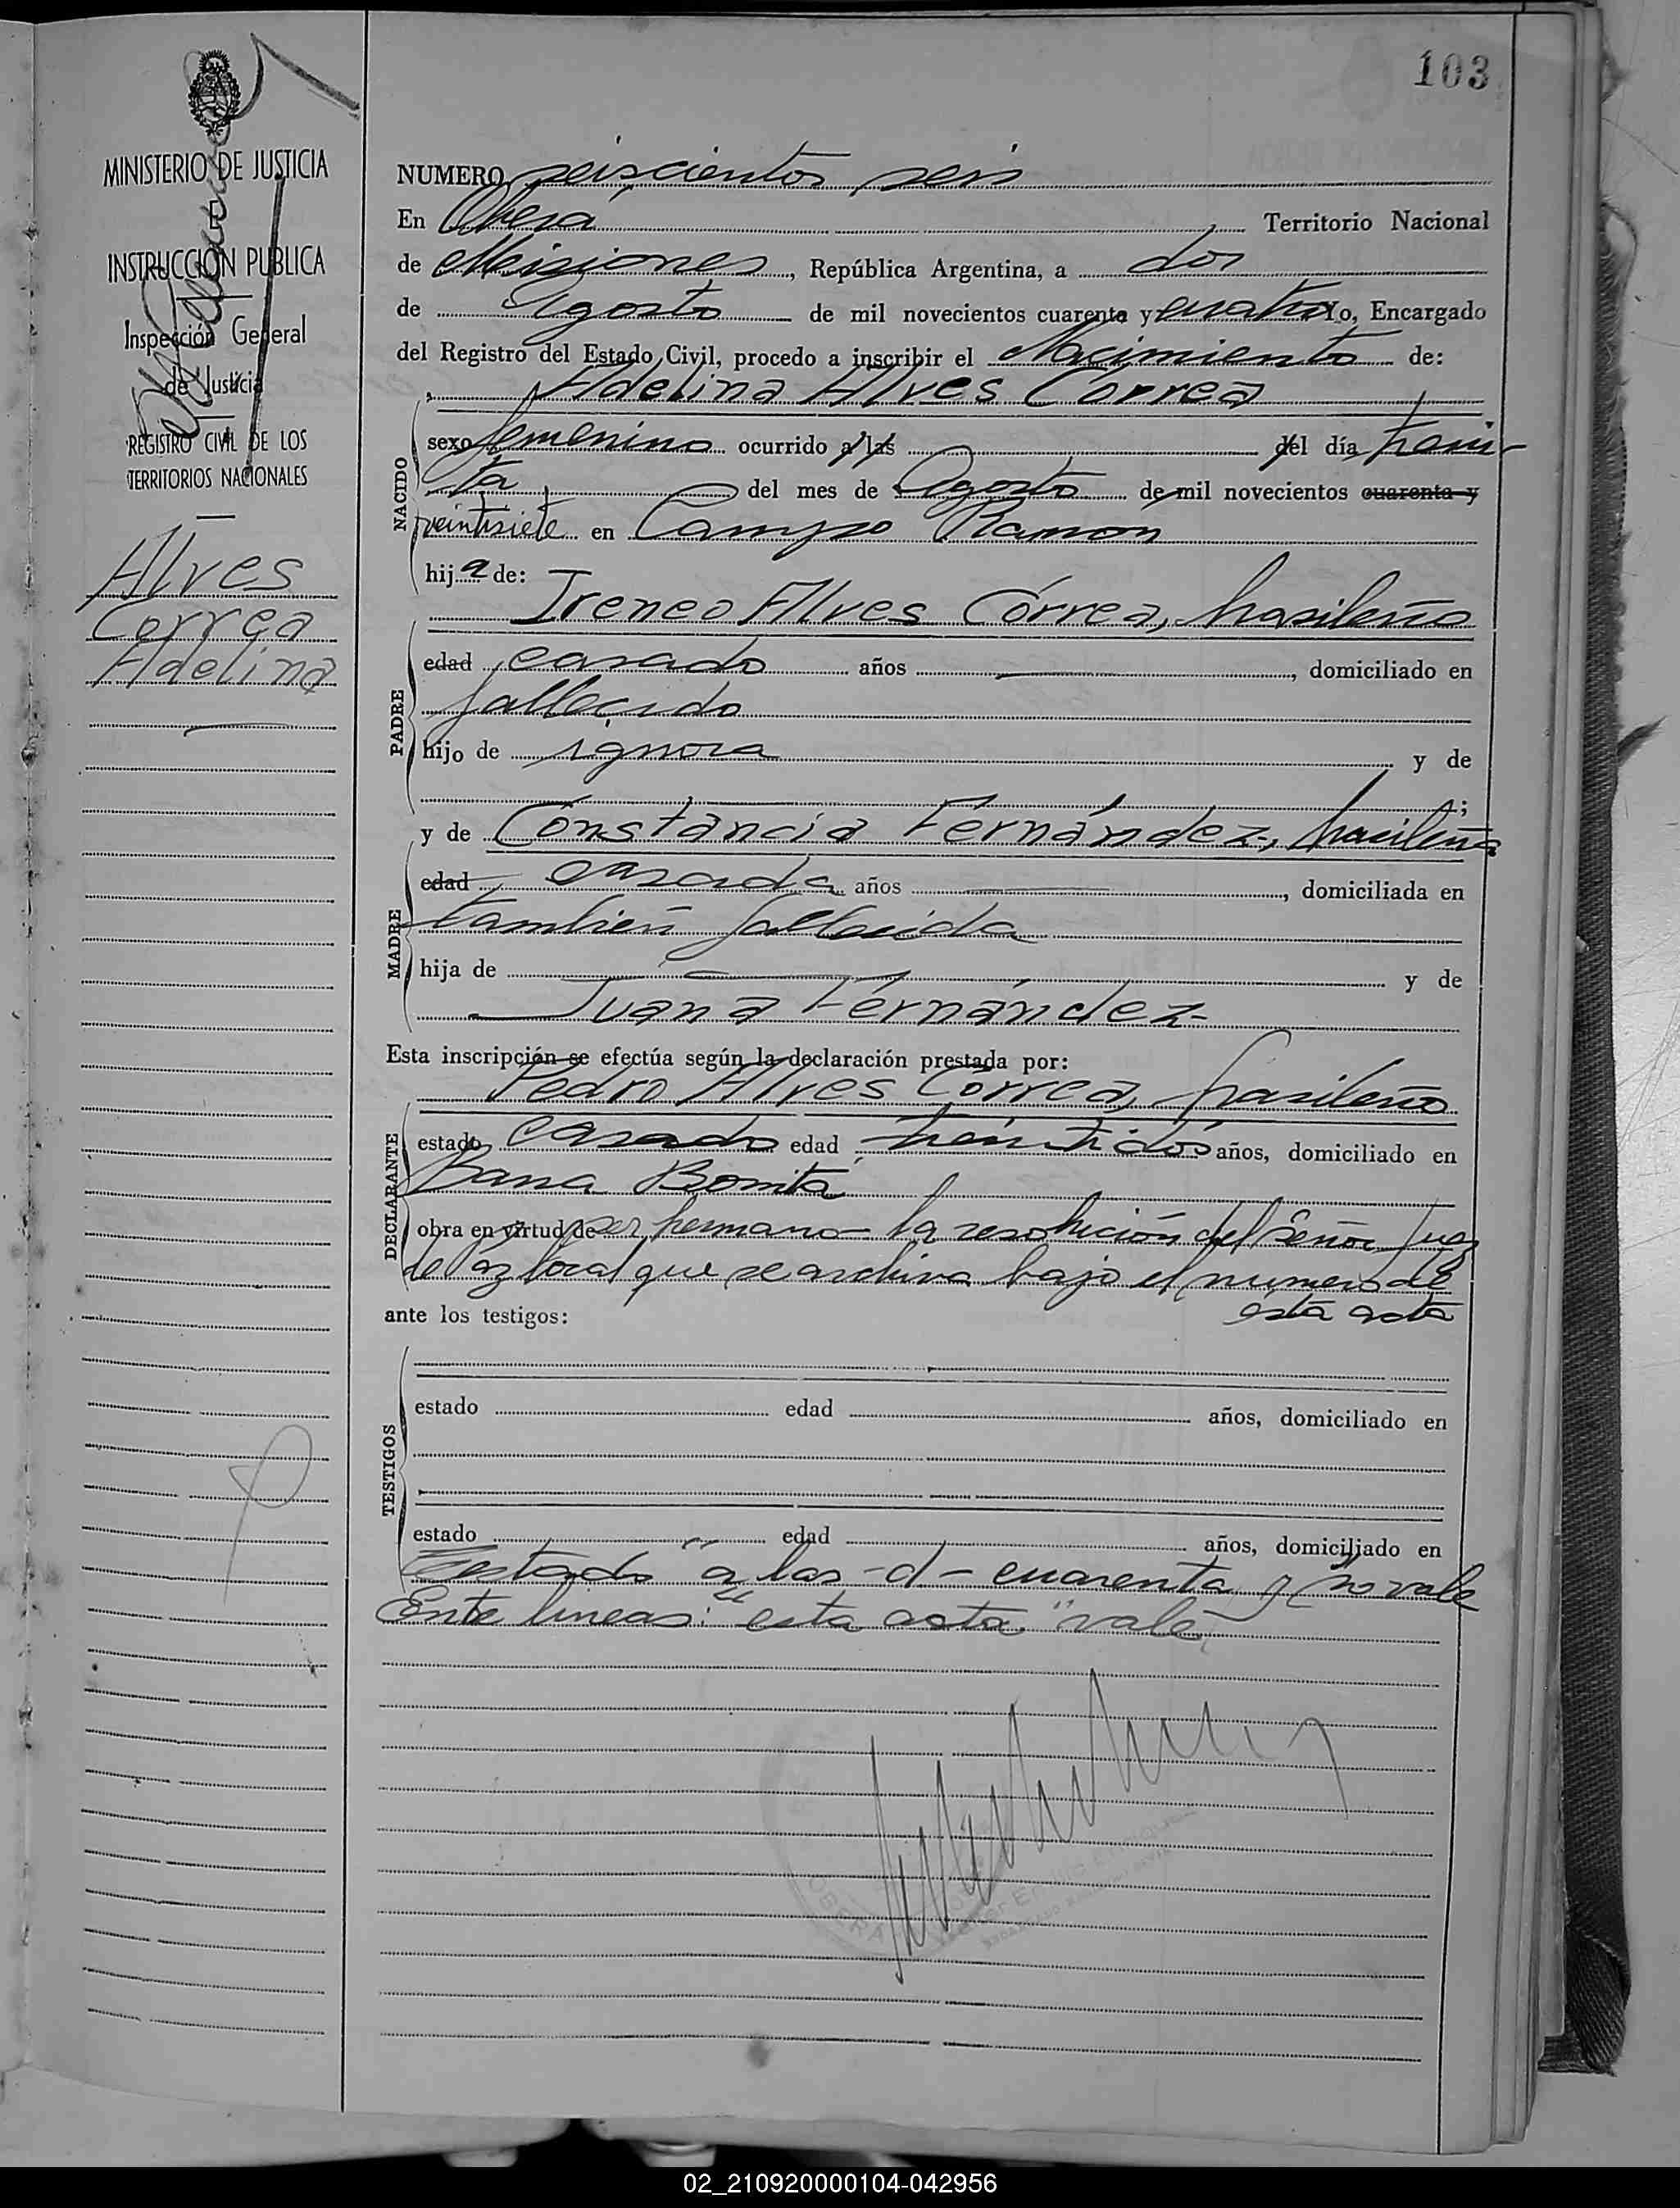 103
MINISTERIO DE JUSTICIA
E
INSTRUCCIÓN PUBLICA
Inspección General
de Justicia
REGISTRO CIVIL DE LOS
TERRITORIOS NACIONALES
Alves
Correa
Adelina
NUMERO seiscientos seis
En Oberá Territorio Nacional
de Misiones, República Argentina, a dos
de Agosto de mil novecientos cuarenta y cuatro Yo, Encargado
del Registro del Estado Civil, procedo a inscribir el Nacimiento de:
Adelina Alves Correa
NACIDO
sexo femenino ocurrido a las del día trein-
ta del mes de Agosto de mil novecientos cuarenta y
veintisiete en Campo Ramon
hija de:
Ireneo Alves Córrea, brasileño
PADRE
edad casado años , domiciliado en
fallecido
hijo de ignora y de
;
y de Constáncia Fernández, brasileña
MADRE
edad casada años , domiciliada en
también fallecida
hija de y de
Juana Fernández
Esta inscripción se efectúa según la declaración prestada por:
Pedro Alves Córrea, brasileño
DECLARANTE
estado casado edad treintidós años, domiciliado en
Barra Bonita
obra en virtud de ser hermano la resolución del Señor Juez
de Paz local que se archiva bajo el numero de
esta acta
ante los testigos:
TESTIGOS
estado edad años, domiciliado en
estado edad años, domiciliado en
Testado "a las -d- cuarenta y" no vale
Entre lineas: "esta acta" vale
OBERA
02_210920000104-042956